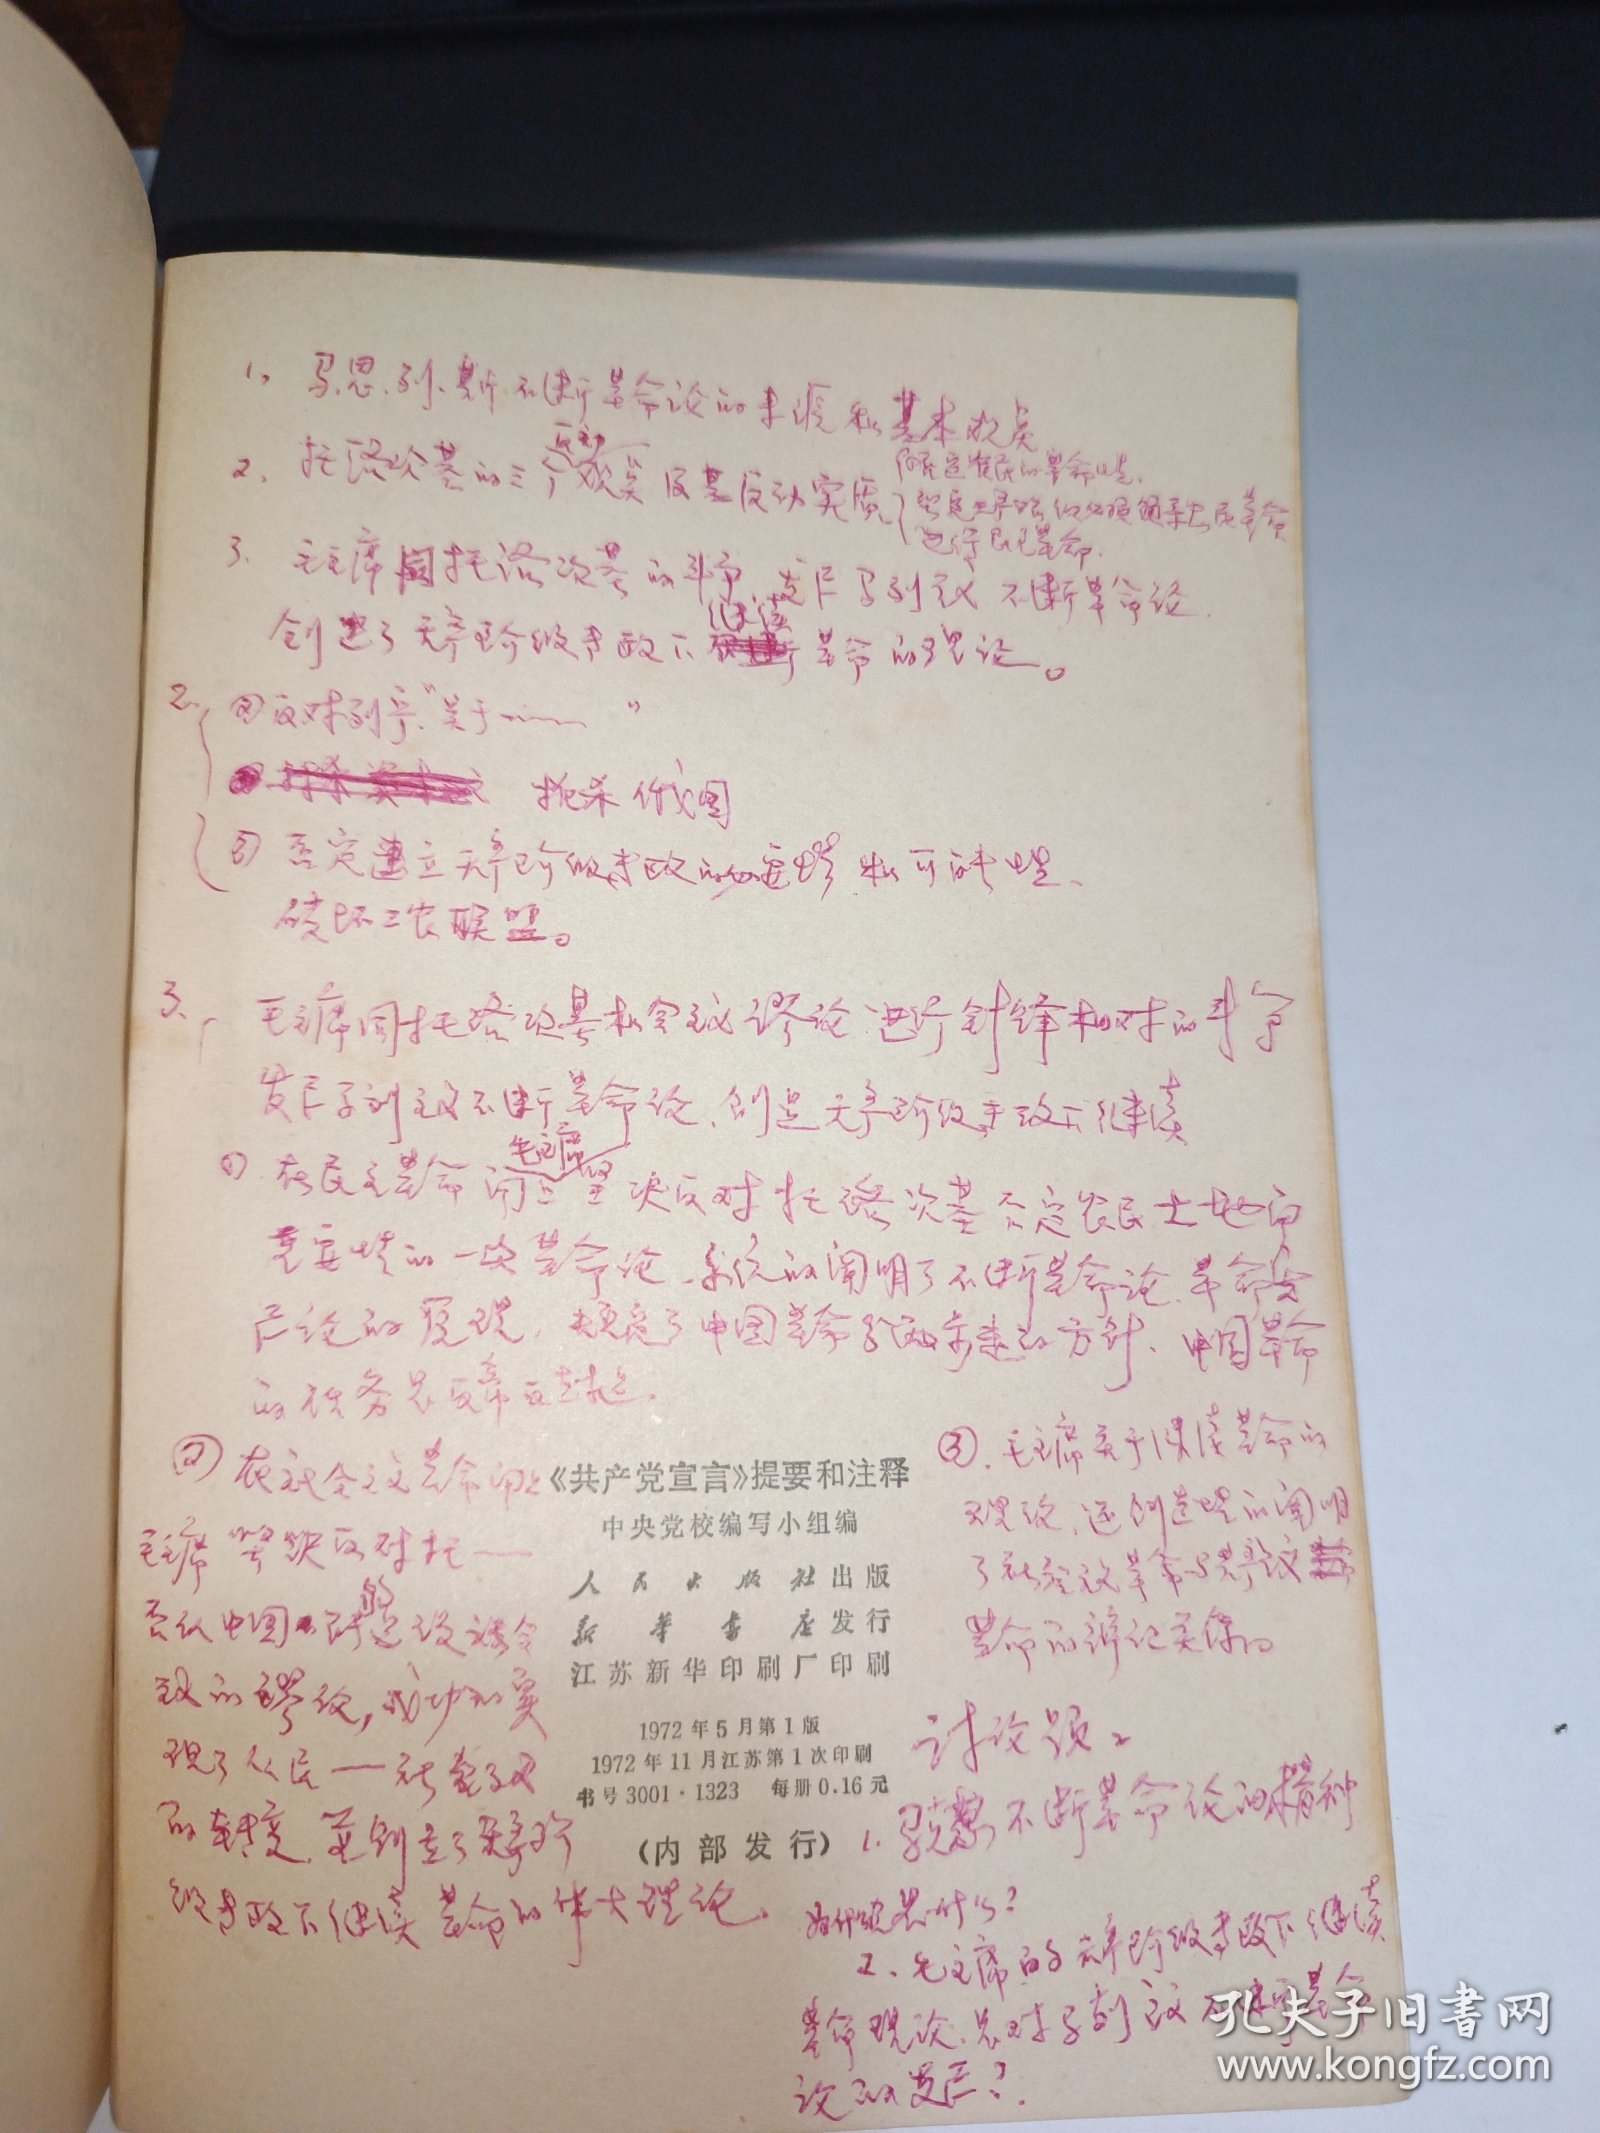 1, 马.恩.列.斯.不断革命论的来源和基本观点
2、托洛茨基的三个反动观点及其反动实质
否定农民的革命性.
3. 毛主席同托洛茨基的斗争,发展马列主义不断革命论.
创造了无产阶级专政下继续革命的理论。
2、②反对列宁"关于—— "
扼杀俄国
③ 否定建立无产阶级专政的必要性和可能性、
破坏工农联盟。
3、毛主席同托洛茨基机会主义谬论进行针锋相对的斗争
发展马列主义不断革命论、创造无产阶级专政下继续
① 在民主革命问题上毛主席坚决反对托洛茨基否定农民土地的
重要性的一次革命论、系统的阐明了不断革命论、革命发
展论的原理、规定了中国革命分两步走的方针、中国革命
的任务是反帝反封建.
② 在社会主义革命问题上
毛主席坚决反对托——
否认中国的
的谬论,成功的实
现了人民——社会主义
的转变.并创立了无产阶
级专政下继续革命的伟大理论、
《共产党宣言》提要和注释
中央党校编写小组编
人民出版社出版
新华书店发行
江苏新华印刷厂印刷
1972年5月第1版
1972年11月江苏第1次印刷
书号3001·1323 每册0.16元
(内部发行)
③. 毛主席关于继续革命的
理论,还创造性的阐明
了社会主义革命与共产主义
革命的辩证关系的
讨论题:
1. 马克思不断革命论的精神
是什么?
2、毛主席的无产阶级专政下继续
革命理论.是对马列主义不断革命
论的发展?.
孔夫子旧书网
www.kongfz.com